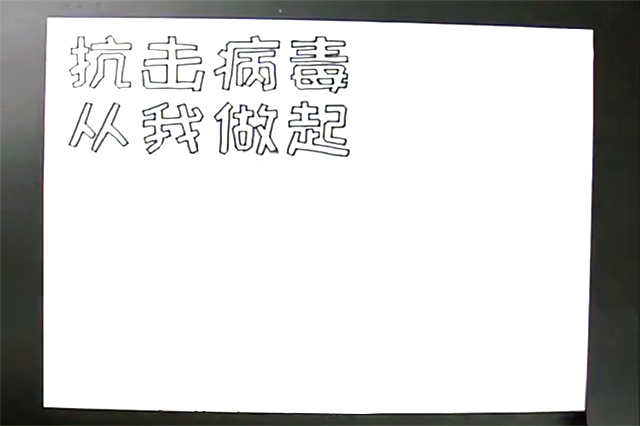 抗击病毒
从我做起